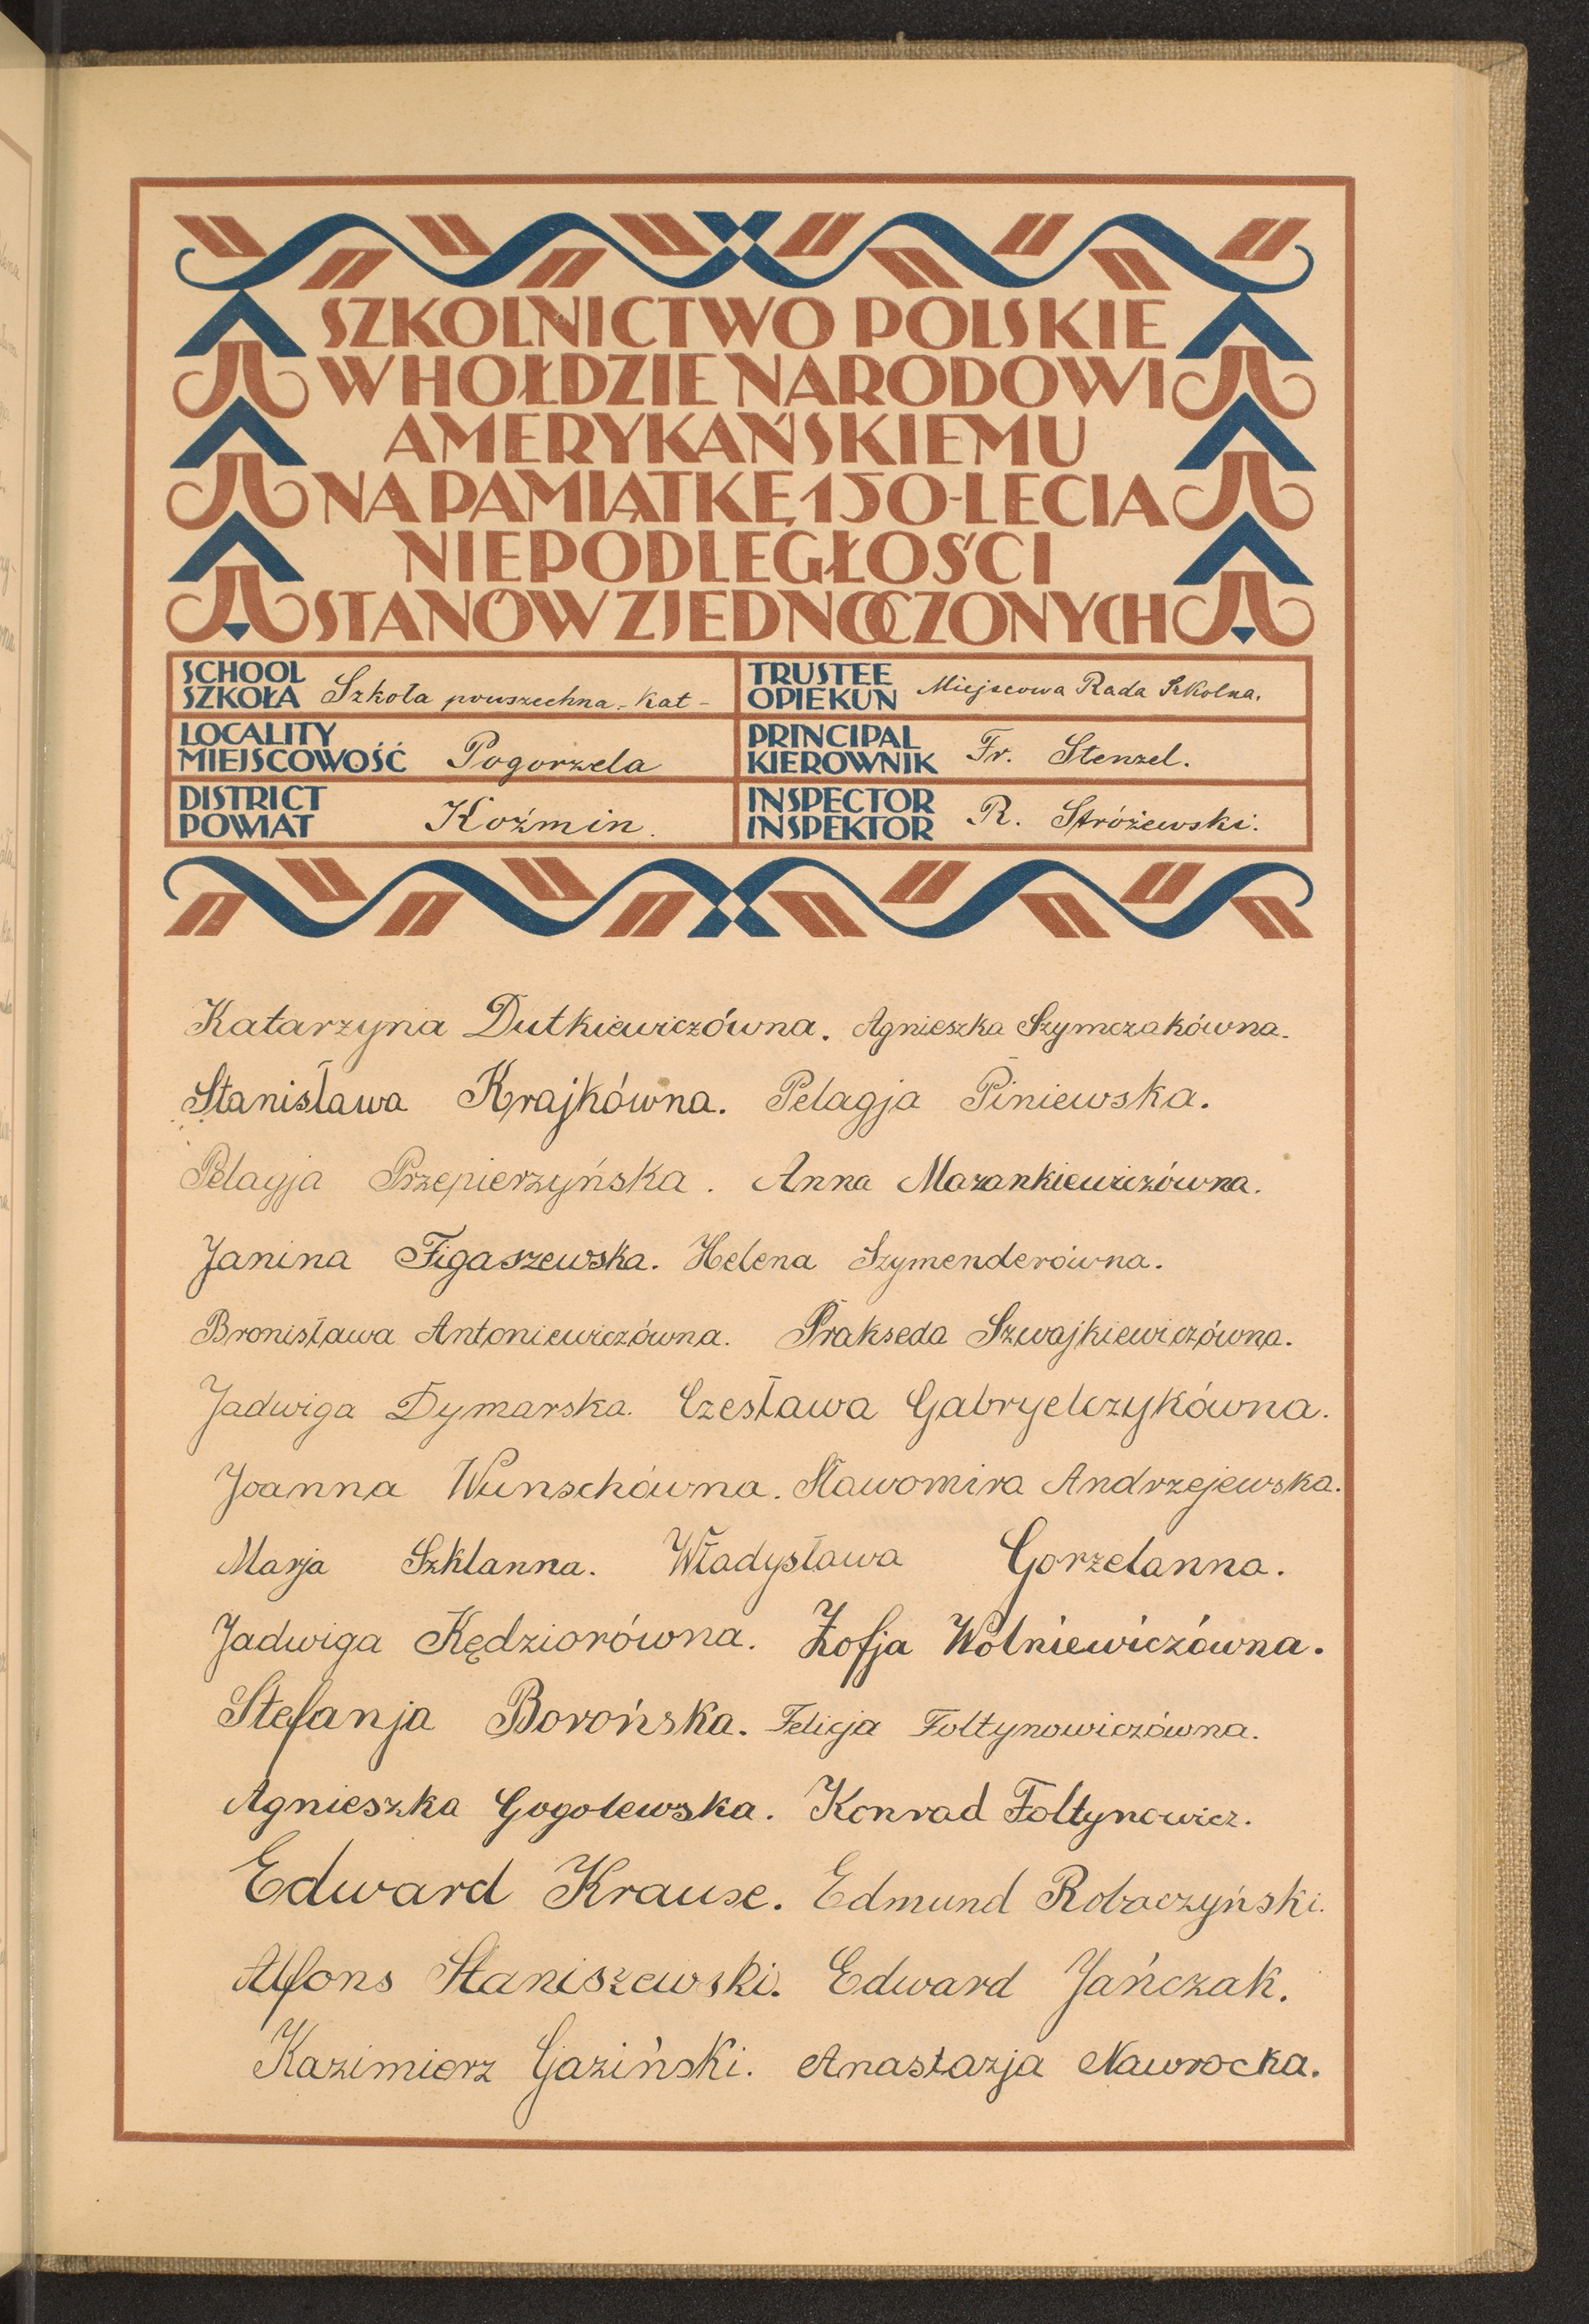 SZKOLNICTWO POLSKIE
W HOŁDZIE NARODOWI
AMERYKAŃSKIEMU
NA PAMIĄTKĘ 150-LECIA
NIEPODLEGŁOŚCI
STANÓW ZJEDNOCZONYCH
SCHOOL
SZKOŁA Szkoła powszechna-kat-
TRUSTEE
OPIEKUN Miejscowa Rada Szkolna.
LOCALITY
MIEJSCOWOŚĆ Pogorzela
PRINCIPAL
KIEROWNIK Fr. Stenzel.
DISTRICT
POWIAT Koźmin.
INSPECTOR
INSPEKTOR R. Stróżewski.
Katarzyna Dutkiewiczówna. Agnieszka Szymczakówna.
Stanisława Krajkówna. Pelagja Piniewska.
Pelagja Przepierzyńska. Anna Mazankiewiczówna.
Janina Figaszewska. Helena Szymenderówna.
Bronisława Antoniewiczówna. Prakseda Szwajkiewiczówna.
Jadwiga Dymarska. Czesława Gabryelczykówna.
Joanna Wunschówna. Sławomira Andrzejewska.
Marja Szklanna. Władysława Gorzelanna.
Jadwiga Kędziorówna. Zofja Wolniewiczówna.
Stefanja Borońska. Felicja Foltynowiczówna.
Agnieszka Gogolewska. Konrad Foltynowicz.
Edward Krause. Edmund Robaczyński.
Alfons Staniszewski. Edward Jańczak.
Kazimierz Gaziński. Anastazja Nawrocka.